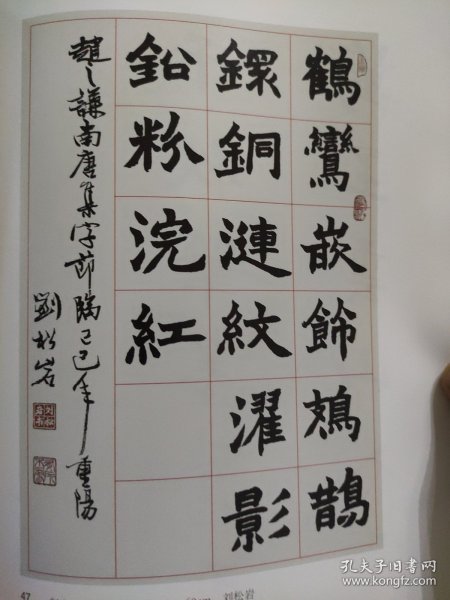 鶴鸞嵌飾鳷鵲
鐶銅漣紋濯影
鉛粉浣紅
趙之謙南唐集字節臨己巳年重陽
劉松岩
47
刘松岩
孔夫子旧书网
www.kongfz.com